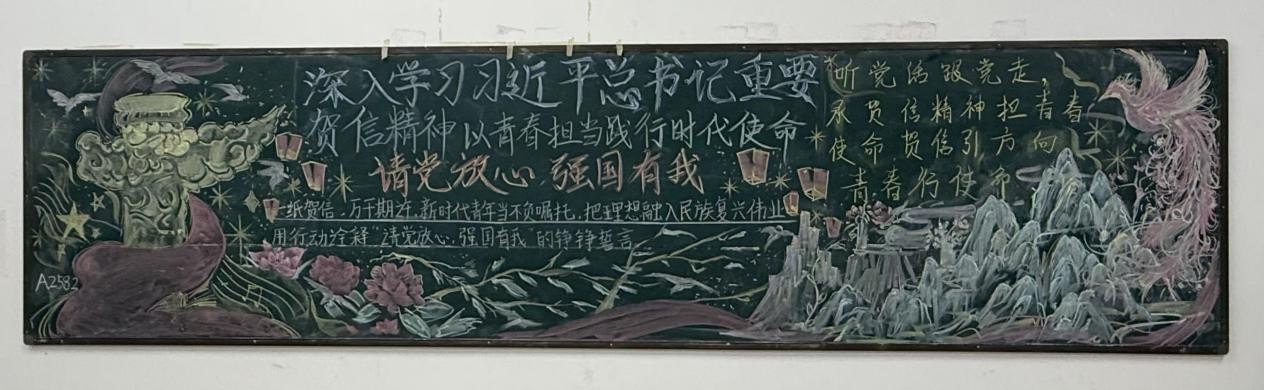 深入学习习近平总书记重要
贺信精神 以青春担当战行时代使命
请党放心 强国有我
一纸贺信,万千期许,新时代青年当不负嘱托,把理想融入民族复兴伟业
用行动诠释“请党放心,强国有我”的铮铮誓言
听党话跟党走,
承贺信精神担青春
使命贺信引方向
青春行使命
A2582